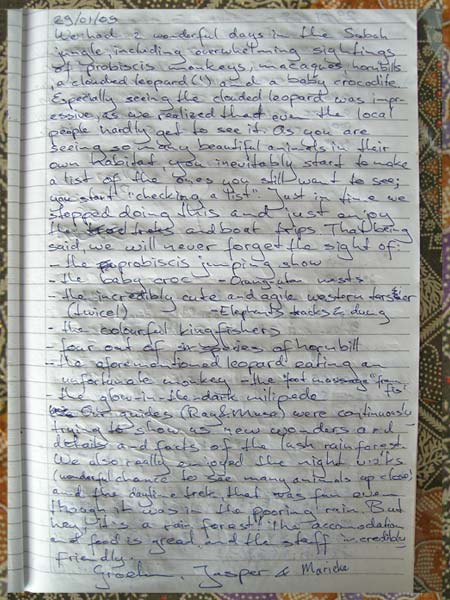 29/01/09
We had 2 wonderful days in the Sabah
jungle including overwhelming sightings
of probiscis monkeys, macaques, hornbills
, a clouded leopard (!) and a baby crocodile.
Especially seeing the clouded leopard was impr-
essive, as we realized that even the local
people hardly get to see it. As you are
seeing so many beautiful animals in their
own habitat you inevitably start to make
a list of the ones you still want to see;
you start "checking a list". Just in time we
stopped doing this and just enjoy
the treks and boat trips. That being
said, we will never forget the sight of:
- the probiscis jumping show
- the baby croc - Orang-utan nests
- the incredibly cute and agile western tarsier
(twice!) - Elephants tracks & dung
- the colourful kingfishers
- four out of species of hornbill
- the aforementioned leopard eating an
unfortunate monkey - the "foot massage" from
- the glow-in-the-dark milipede fis
Our guides (Ray & Muse) were continuously
trying to show us new wonders and
details and facts of the lush rainforest.
We also really enjoyed the night walks
(wonderful chance to see many animals up close)
and the daytime trek, that was fun even
though it was in the pooring rain. But
hey! it's a rain forest! The accomodation
and food is great and the staff incredibly
friendly.
Jasper & Marieke